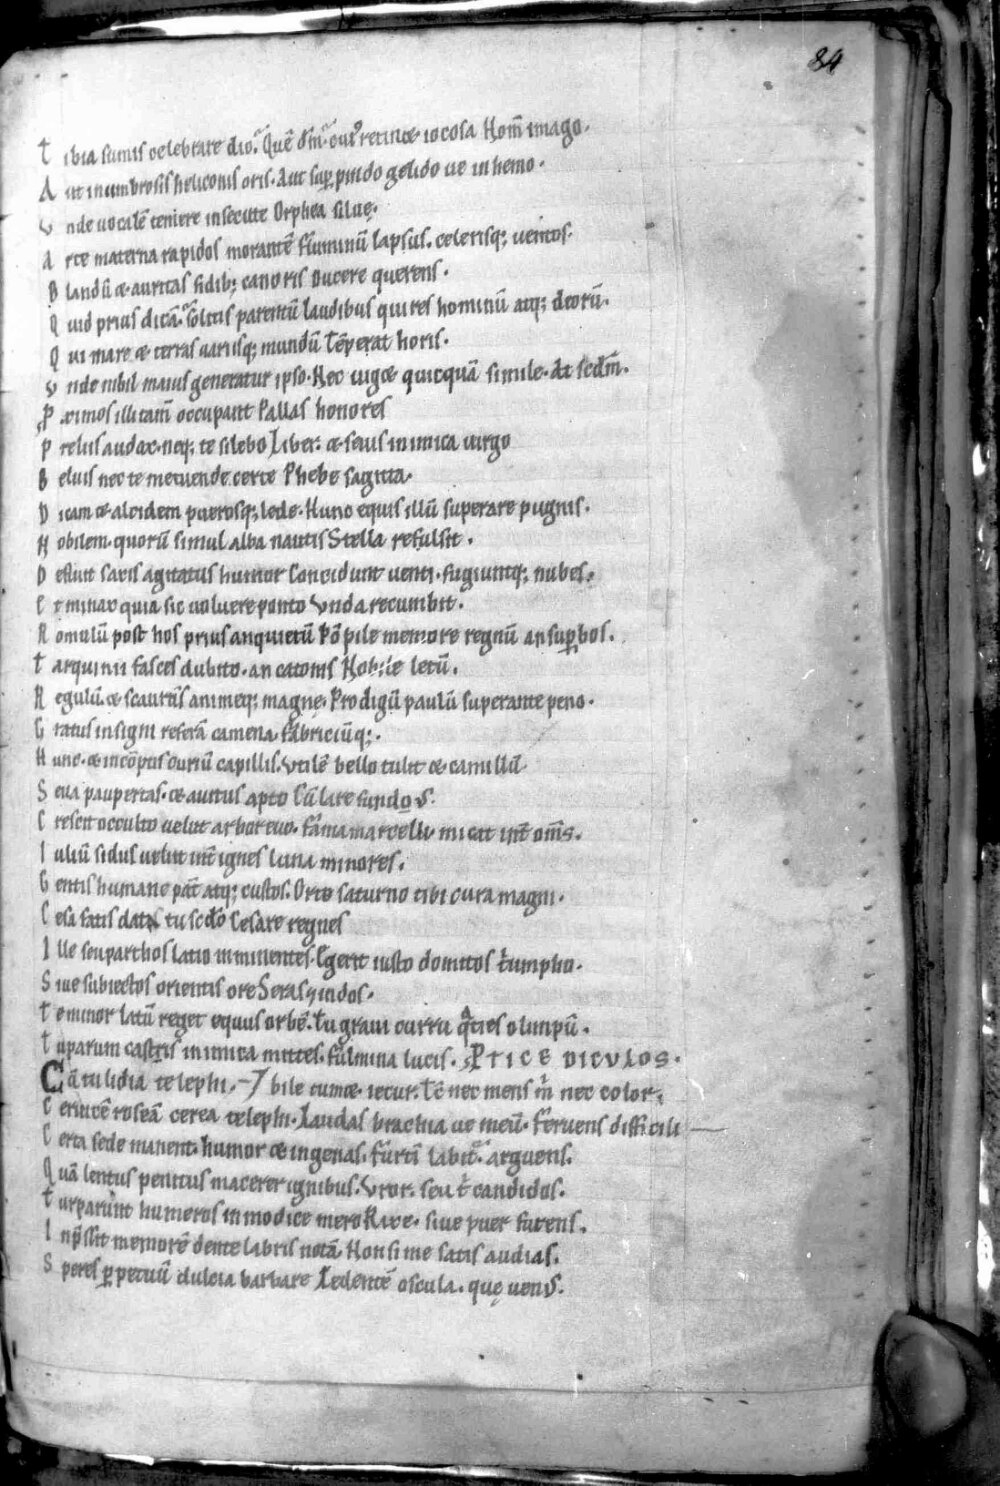 84
Tibia sumis celebrare clio. Quē dm̄ cui' recinæ iocosa Nom̄ imago.
Aut in umbrosis heliconis oris. Aut sup pindo gelido ue in hemo.
Unde uocalē temere insecute Orphea siluę.
Arte materna rapidos morantē fluminū lapsus. celerisq; uentos.
Blandū & auritas fidib; canoris Ducere querens.
Quid prius dicā solitis parentū laudibus qui res hominū atq; deorū.
Qui mare & terras uariisq; mundū Tēperat horis.
Unde nihil maius generatur ipso. Nec uigæ quicquā simile. At scdm̄.
Pximos illi tam̄ occupauit Pallas honores
Preliis audax. neq; te silebo Liber. & seuis inimica uirgo
Beluis nec te metuende certe Phebe sagitta.
Dicam & alcidem puerosq; lede. Hunc equis illū superare pugnis.
Nobilem. quorū simul alba nautis Stella refulsit.
Defluit saxis agitatus humor Concidunt uenti. fugiuntq; nubes.
Et minax quia sic uoluere ponto Unda recumbit.
Romulū post hos prius an quietū Pōpile memore regnū an supbos.
Tarquinii fasces dubito. an catonis Nobile letū.
Regulū & scauros animeq; magnę. Prodigū paulū superante peno.
Gratus insigni referā camena. fabriciūq;.
Hunc & incōptis curiū capillis. Utilē bello tulit & camillū
Seua paupertas. & auitus apto Cū lare fundus.
Crescit occulto uelut arbor euo. fama marcelli. micat int̄ om̄s.
Iuliū sidus uelut int̄ ignes luna minores.
Gentis humane pat̄ atq; custos. Orte saturno tibi cura magni.
Cesaris fatis data tu scdo Cesare regnes
Ille seu parthos latio imminentes. Egerit iusto domitos triumpho.
Siue subiectos orientis ore Seras ⁊ indos.
Te minor latū reget equus orbē. Tu graui curru quaties olimpū.
Tu parum castris inimica mittes. fulmina lucis. PTICE DICULOS.
Cū tu lidia telephi. bile tumæ iecur. Tē nec mens m̄ nec color.
Ceruicē roseā cerea telephi. Laudas brachia ue meū. Feruens difficili
Certa sede manent. humor & in genas. furtī labit. arguens.
Quā lentus penitus macerer ignibus. Uror. seu t̄ candidos.
Turparunt humeros inmodice mero Rixe. siue puer furens.
Inpssit memorē dente labris notā Non si me satis audias.
Speres ppetuū dulcia barbare Ledentē oscula. quę uenus.